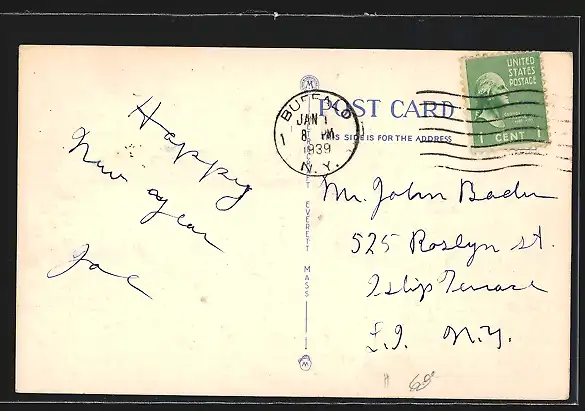 Happy
New year
Joe
BUFFALO
JAN 1
8 PM
1939
N.Y.
POST CARD
THIS SIDE IS FOR THE ADDRESS
UNITED
STATES
POSTAGE
1 CENT 1
EVERETT MASS
Mr. John Bader
525 Roslyn st.
Islip Terrace
L.I. N.Y.